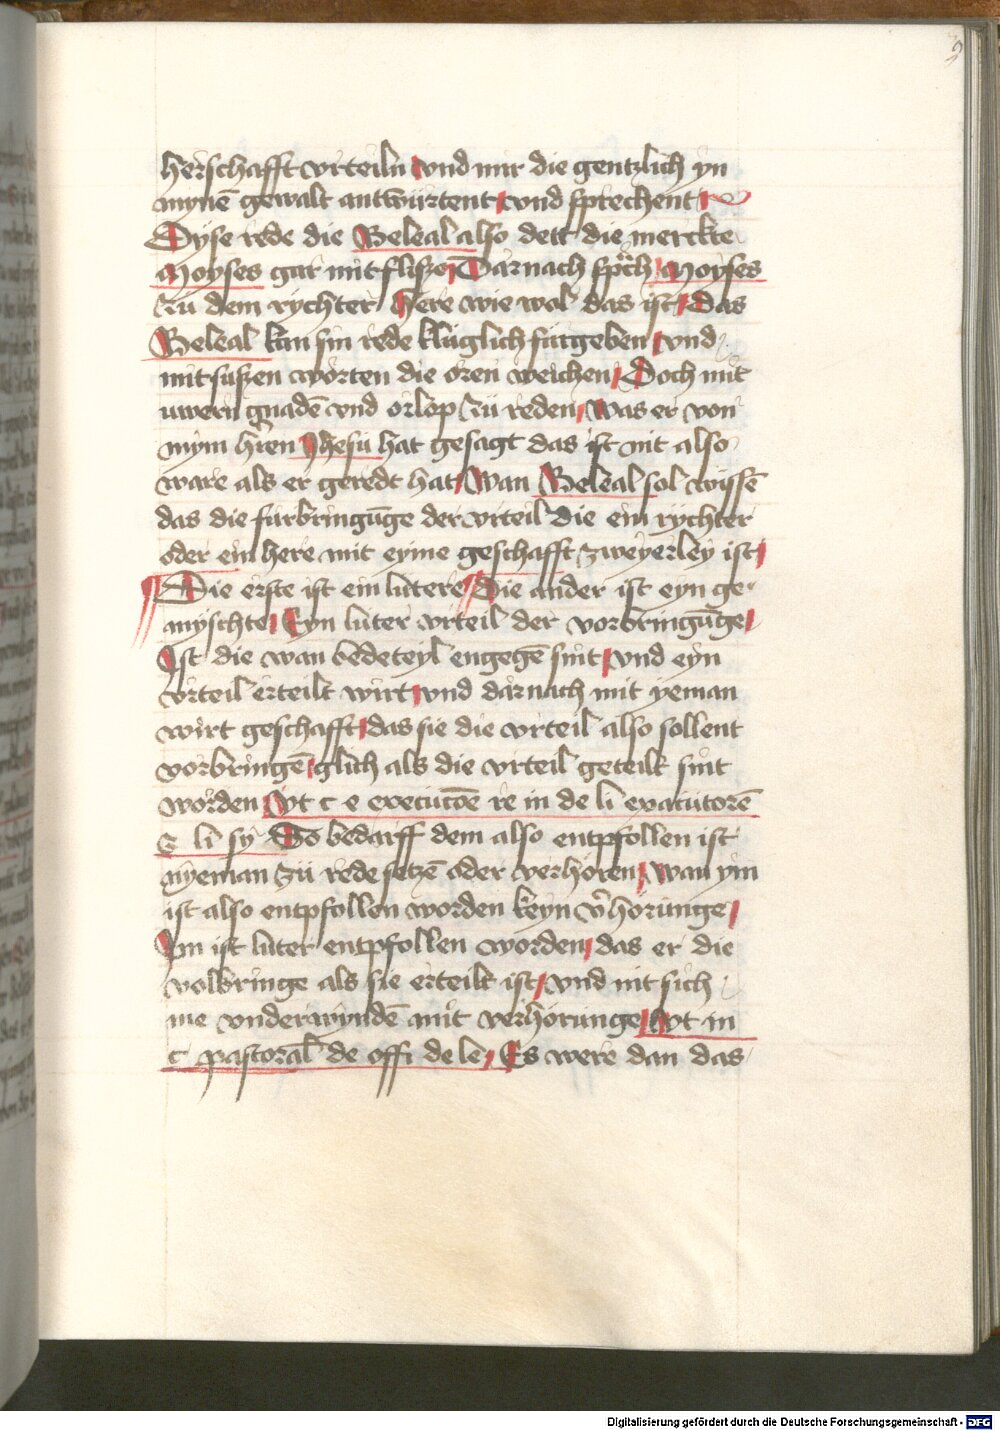 9
herschafft vrteiln vnd mir die gentzlich yn
mynē gewalt antwürtent vnd sprechent
Dyse rede die Beleal also dett die merckte
Moyses gar mit flisze Darnach sprch Moyses
zü dem rychter Here wie wol das ist das
Beleal kan sin rede klüglich fürgeben vnd
mit süszen worten die oren weichen Doch mit
uwern gnadē vnd orlop zü reden was er von
mym hren Jhesü hat gesagt das ist nit also
ware als er geredt hat Wan Beleal sol wissē
das die fürbringūge der vrteil die ein rychter
oder ein here mit eyme geschafft zweyerley ist
Die erste ist ein lutere Die ander ist eyn ge-
myschte Eyn luter vrteil der vorbringūge
Ist die wan bedeteyl engegē sint vnd eyn
vrteil erteilt wirt vnd darnach mit yeman
wirt geschafft das sie die vrteil also sollent
vorbringē glich als die vrteil geteilt sint
worden Vt c e execucōe re in de li execūtorē
S li sy So bedarff dem also entpfollen ist
nyeman zü rede setzē oder verhoren wan ym
ist also entpfollen worden keyn v̄horunge
Im ist luter entpfollen worden das er die
volbringe als sie erteilt ist vnd nit sich
me vnderwyndē mit verhorunge Vt in
c pastoral de offi de le Es were dan das
Digitalisierung gefördert durch die Deutsche Forschungsgemeinschaft - DFG